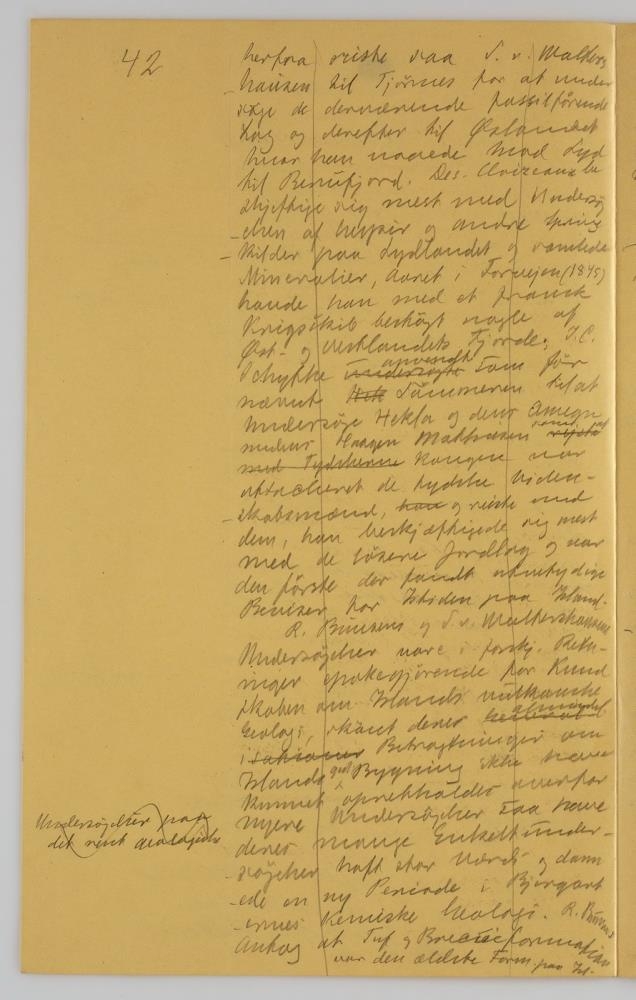 42
herfra reiste saa S. v. Walters
hausen til Tjörnes for at under
söge de derværende fossilförende
Lag og derefter til Östlandet
hvor han naaede mod Syd
til Berufjord. Des-Cloizeaux be
skjeftige sig mest med Undersög
elsen af Geysir og andre Spring
kilder paa Sydlandet og samlede
Mineralier, Aaret i Forvejen (1845)
havde han med et fransk
Krigsskib besögt nogle af
Öst- og Vestlandets Fjorde; J.C.
Schythe undersögte anvendte som för
nævnt Hek Sommeren til at
undersöge Hekla og dens Omegn
medens Haagen Mathiesen reiste
med Tydskerne Kongen var
attacheret de tydske Viden-
skabsmænd, han og reiste med
dem, han beskjæftigede sig mest
med de lösere Jordlag og var
den förste der fandt utvetydige
Beviser for Istiden paa Island.
R. Bunsens og S. v. Waltershausens
Undersögelser vare i forskj. Retn-
inger epokegjörende for Kund
skaben om Islands vulkanske
Geologi, skönt deres almindel
i Betragtninger om
Islands geol Bygning ikke have
kunnet opretholdes overfor
nyere Undersögelser saa have
deres mange Enkeltunder-
sögelser haft stor Værdi og dann
ede en ny Periode i Bjergart
ernes kemiske Geologi. R. Bunsens
Antag at Tuf og Breccieformation
var den ældste Form. paa Isl.
Undersögelser paa
det rent geologiske